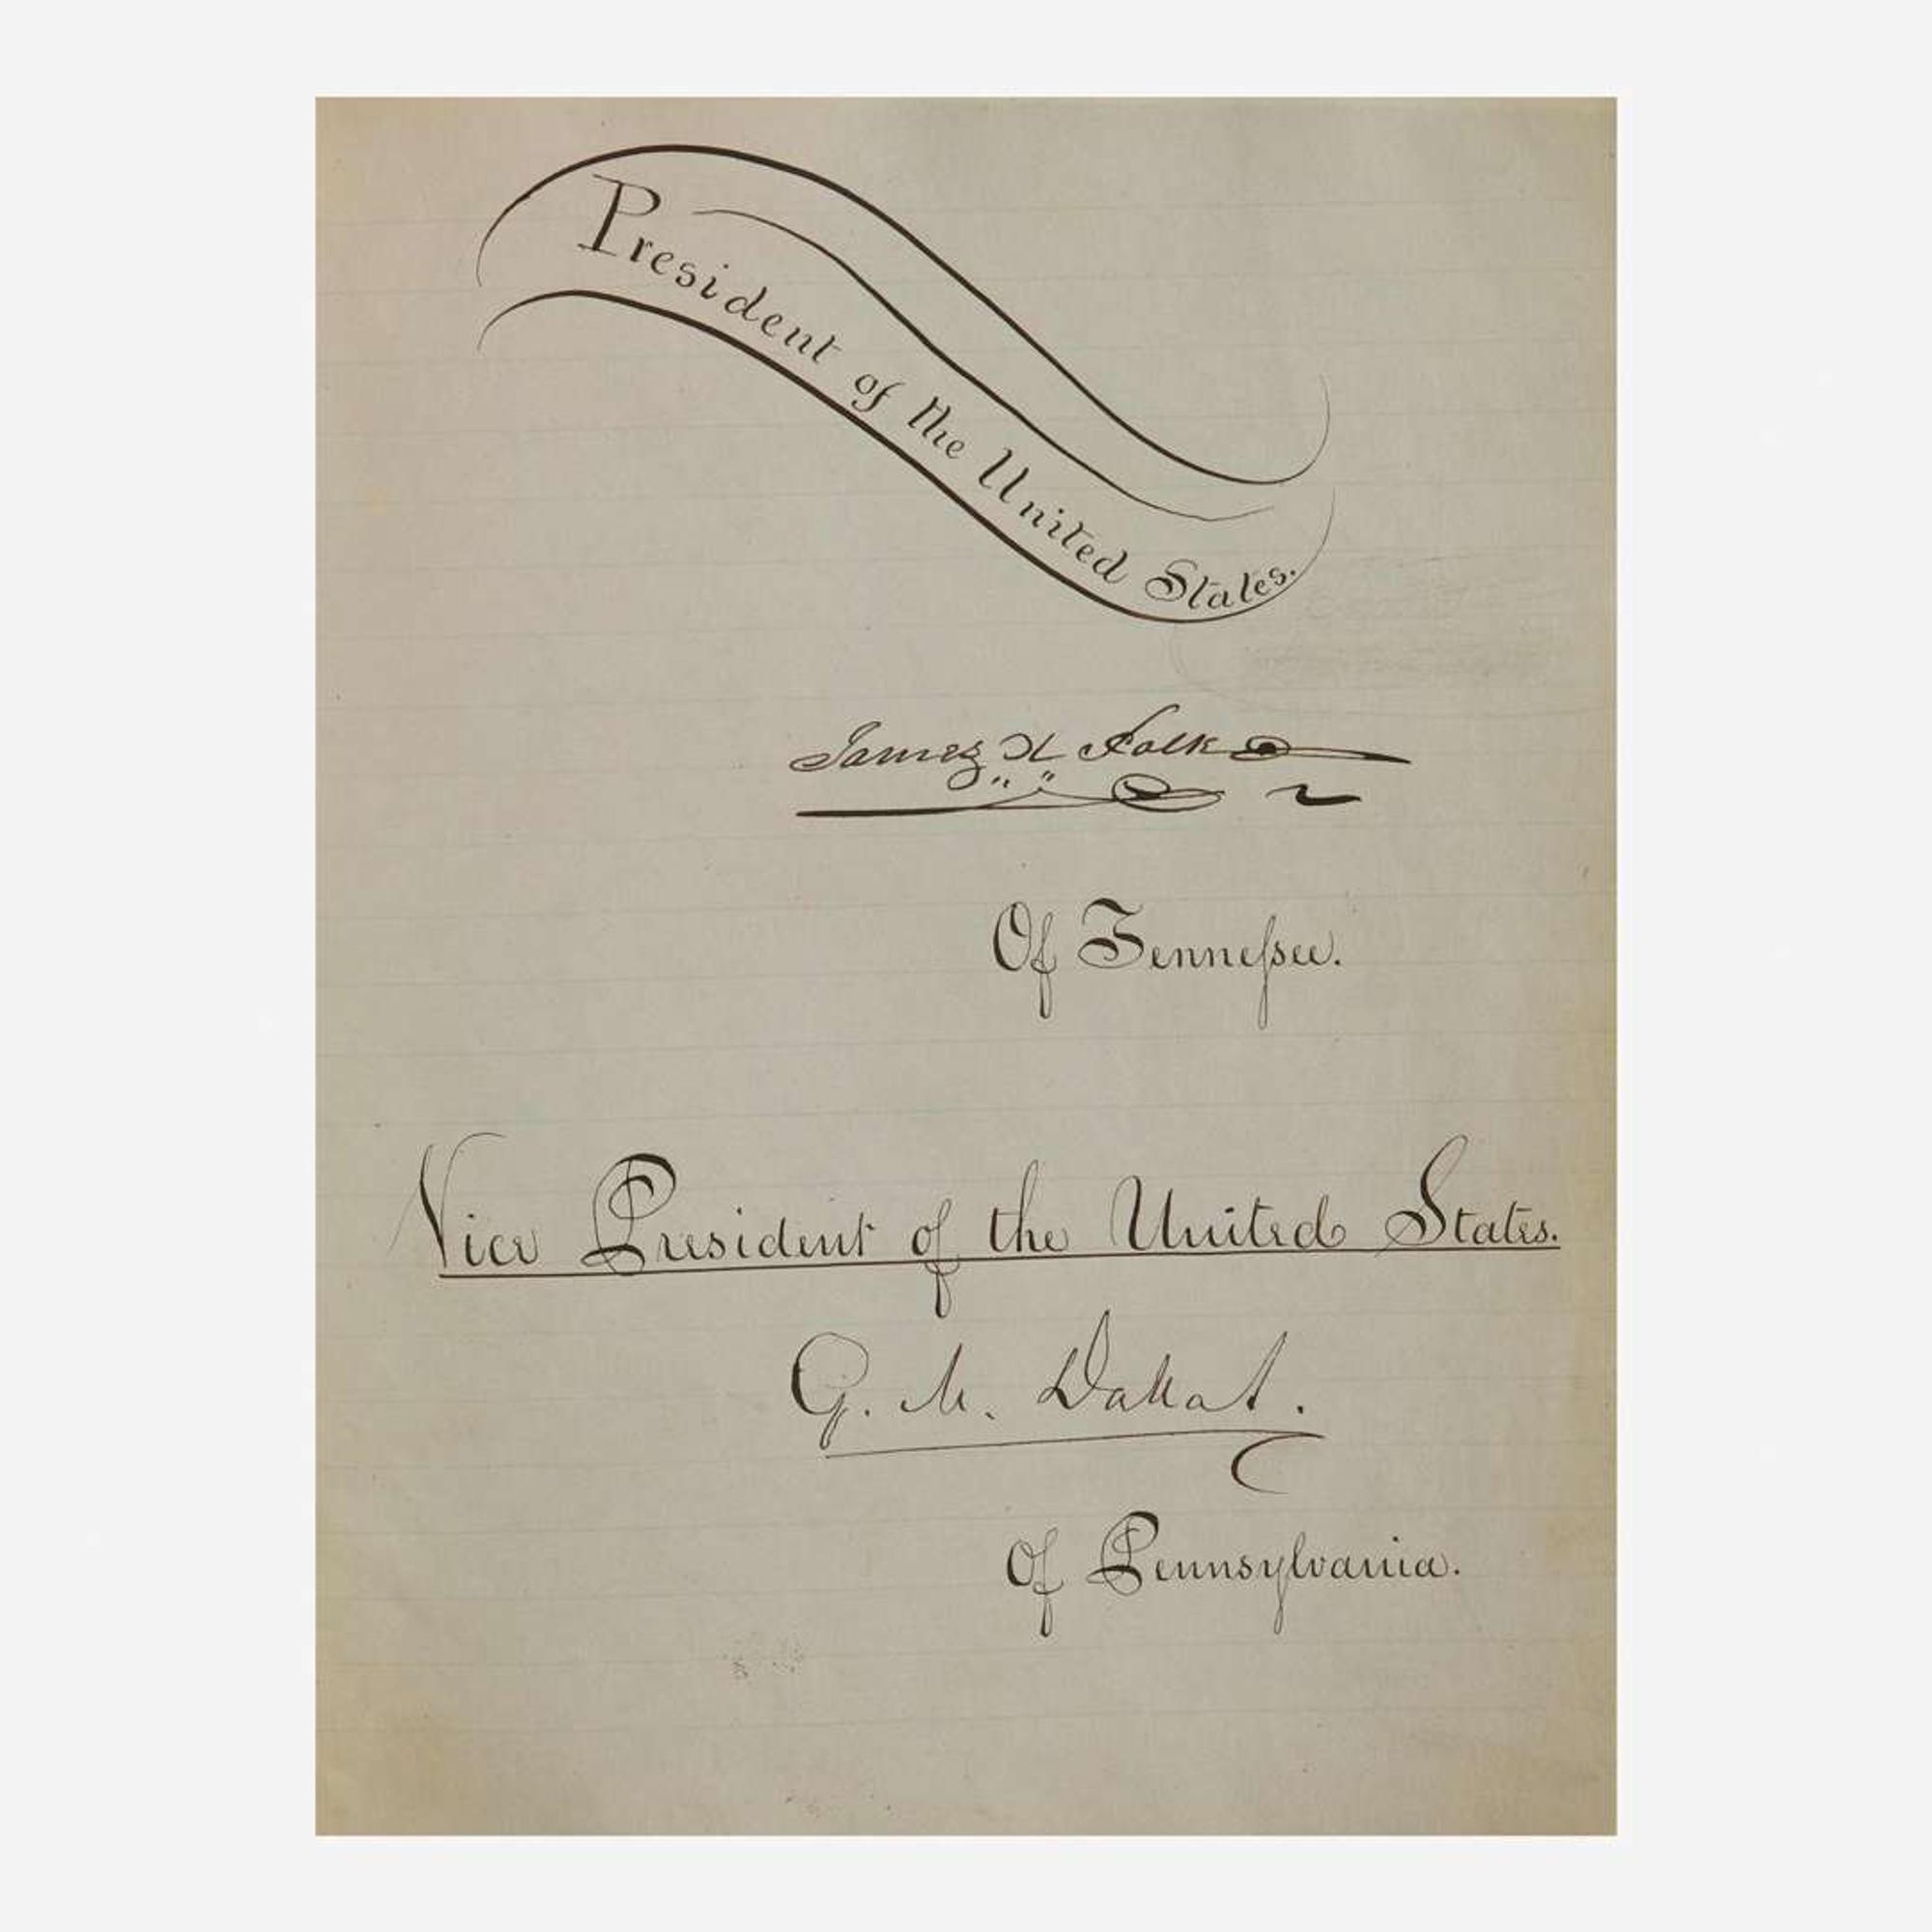 President of the United States.
James K Polk
Of Tenneſsee.
Vice President of the United States.
G. M. Dallas.
Of Pennsylvania.